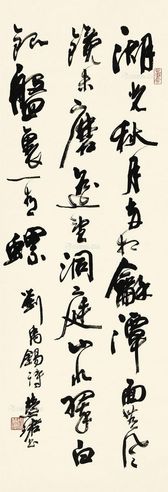 湖光秋月兩相龢潭面無風
鏡未磨遥望洞庭山水翠白
銀盤裏一青螺
劉禹錫詩